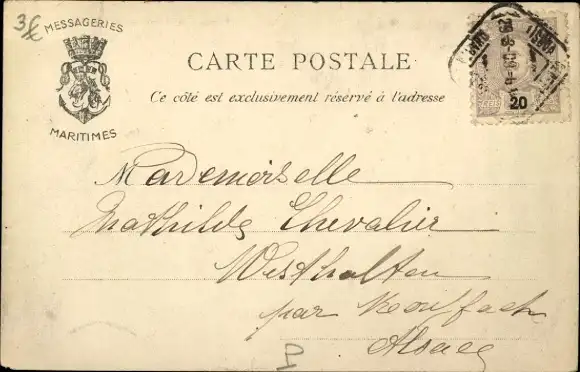 3€
MESSAGERIES
MARITIMES
CARTE POSTALE
Ce côté est exclusivement réservé à l'adresse
20
Mademoiselle
Mathilde Chevalier
Westhalten
par Rouffach
Alsace